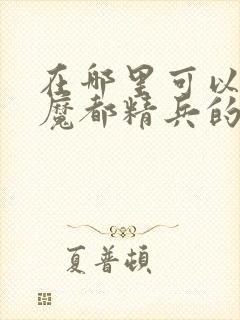 在哪里可以
魔都精兵的
夏普顿